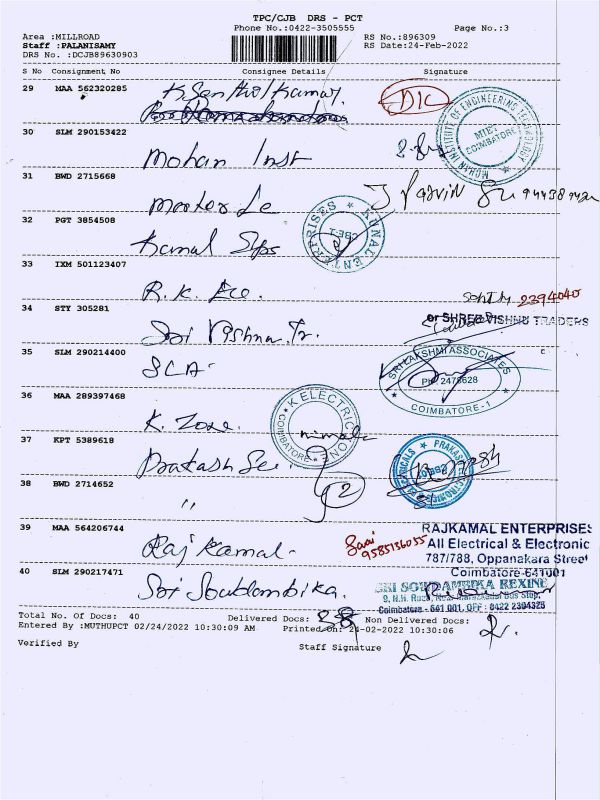 TPC/CJB DRS - PCT
Phone No.:0422-3505555 Page No.:3
Area :MILLROAD RS No.:896309
Staff :PALANISAMY RS Date:24-Feb-2022
DRS No. :DCJB89630903
S No Consignment No Consignee Details Signature
29 MAA 562320285
K Senthol Kumar. D/C
30 SLM 290153422
Mohan Inst
MOHAN INSTITUTE OF ENGINEERING TECHNOLOGY MIET COIMBATORE
31 BWD 2715668
32 PGT 3854508
Kamal Sps
KUNAL ENTERPRISES CBE-1
33 IXM 501123407
R.K. Ele. 2394040
34 STY 305281 for SHREE VISHNU TRADERS
Sri Vishnu Tr.
35 SLM 290214400
SLA
SRI LAKSHMI ASSOCIATES PH: 2476628 COIMBATORE-1
36 MAA 289397468
K. Zone
K ELECTRIC ZONE COIMBATORE
nirmala
37 KPT 5389618
Prakash Ele.
38 BWD 2714652
"
39 MAA 564206744
Raj Kamal- 9585136055
RAJKAMAL ENTERPRISES
All Electrical & Electronic
787/788, Oppanakara Street
Coimbatore-641001
40 SLM 290217471
Sri Soudambika.
SRI SOWDAMBIKA REXINE
Coimbatore - 641 001, OFF : 0422 2394325
Total No. of Docs: 40 Delivered Docs: 38 Non Delivered Docs: 2.
Entered By :MUTHUPCT 02/24/2022 10:30:09 AM Printed on: 24-02-2022 10:30:06
Verified By Staff Signature